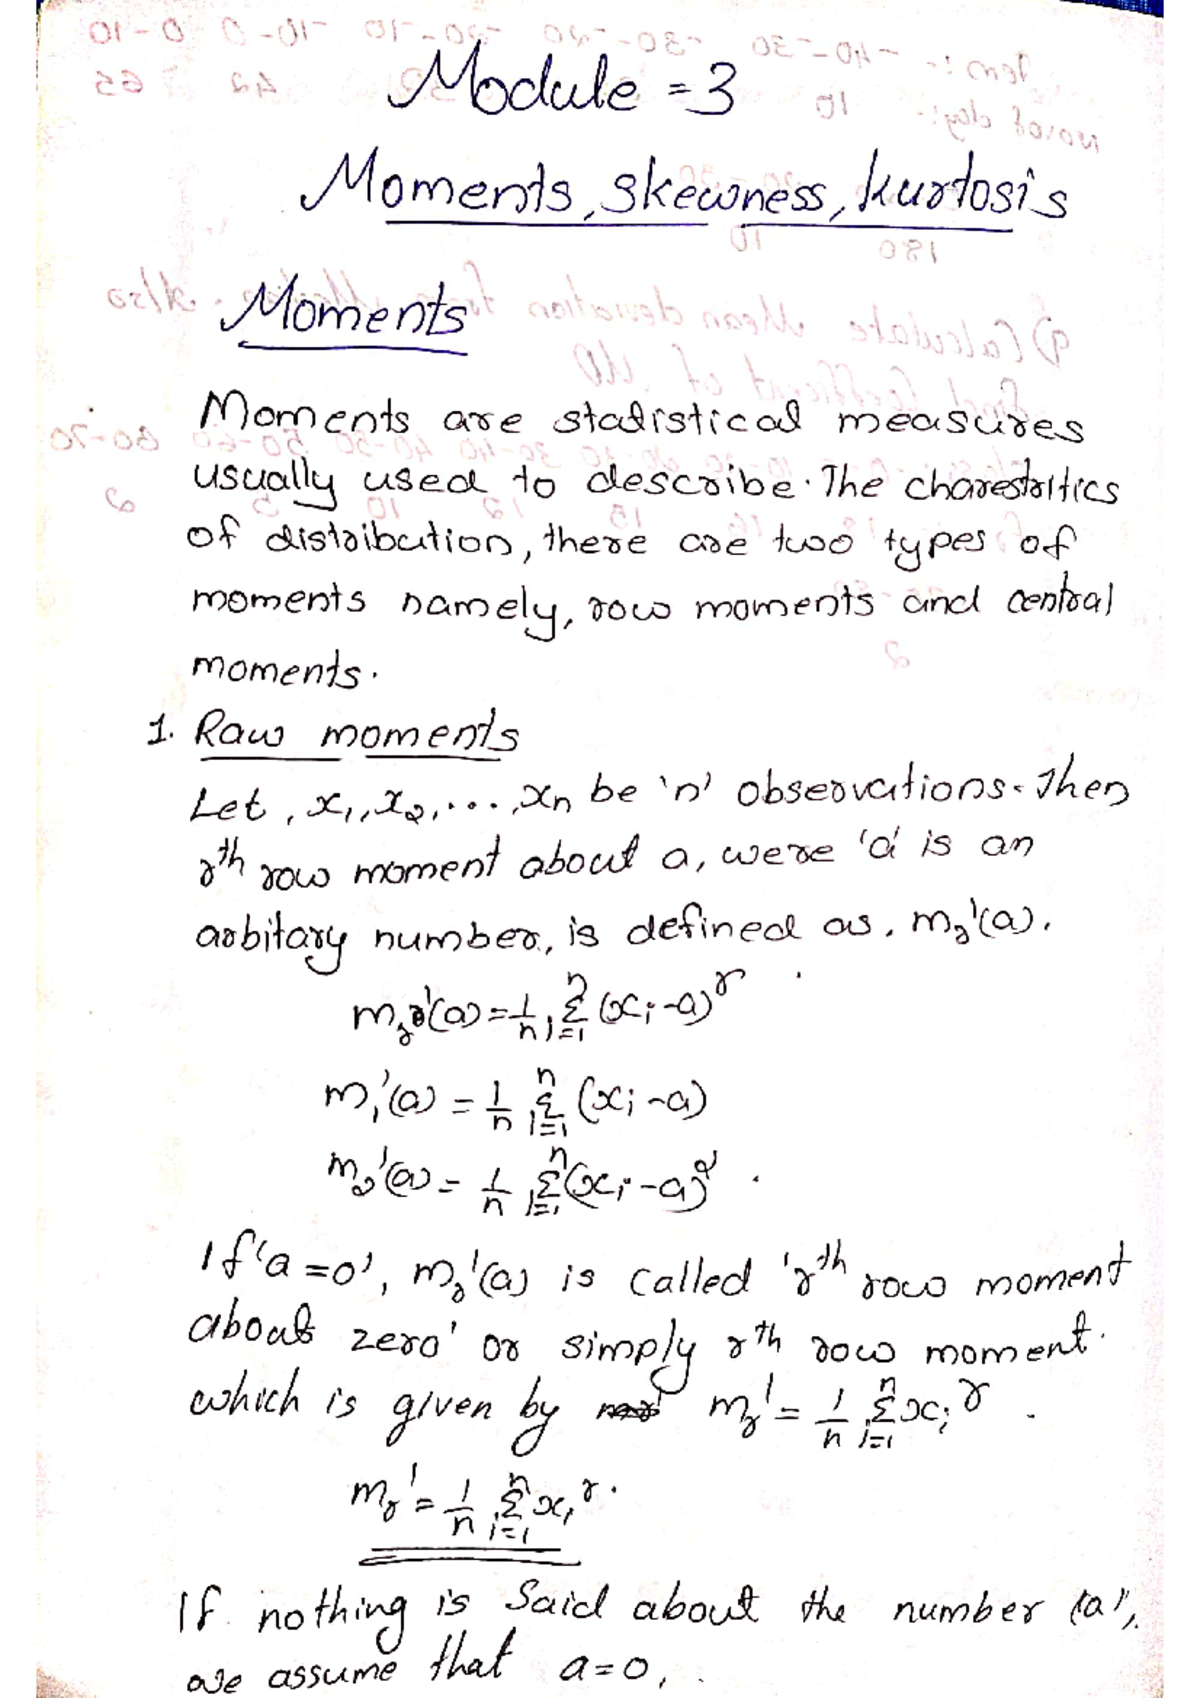 Module = 3
Moments, skewness, kurtosis
Moments
Moments are statistical measures
usually used to describe. The charestaitics
of distribution, there are two types of
moments namely, row moments and central
moments.
1. Raw moments
Let, x₁, x₂, ..., xn be 'n' observations. Then
rth row moment about a, were 'a' is an
arbitary number, is defined as, mr'(a).
mr'(a) = 1/n Σ(i=1 to n) (xi - a)^r
m₁'(a) = 1/n Σ(i=1 to n) (xi - a)
m₂'(a) = 1/n Σ(i=1 to n) (xi - a)²
If 'a = 0', mr'(a) is called 'rth row moment
about zero' or simply rth row moment.
which is given by mr' = 1/n Σ(i=1 to n) xi^r
mr' = 1/n Σ(i=1 to n) xi^r.
If nothing is Said about the number 'a',
we assume that a = 0,